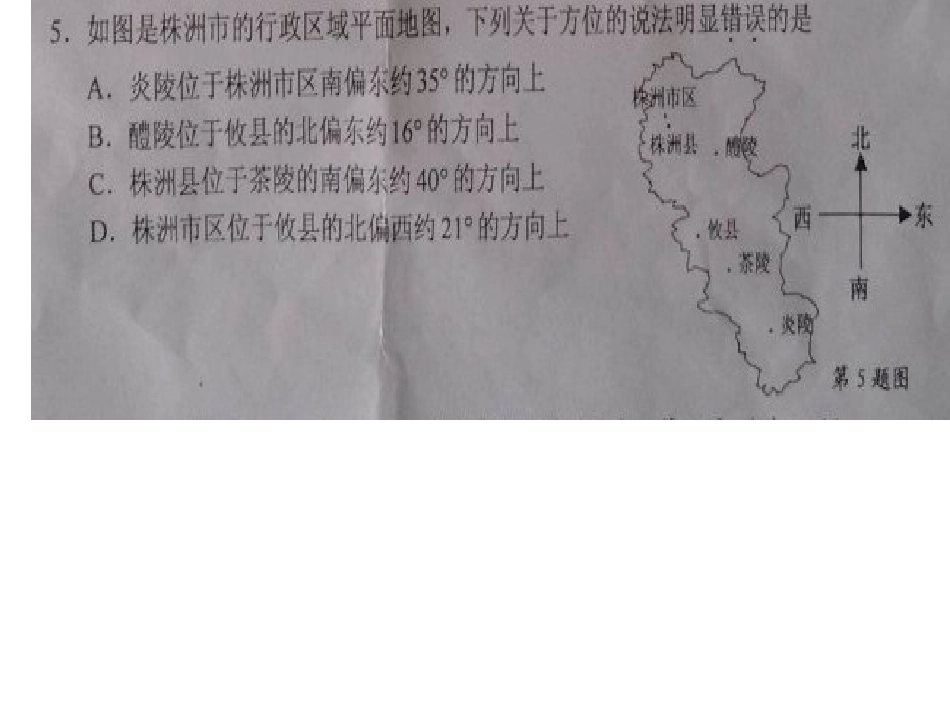 5．如图是株洲市的行政区域平面地图，下列关于方位的说法明显错误的是
A．炎陵位于株洲市区南偏东约35°的方向上
B．醴陵位于攸县的北偏东约16°的方向上
C．株洲县位于茶陵的南偏东约40°的方向上
D．株洲市区位于攸县的北偏西约21°的方向上
株洲市区
株洲县
醴陵
攸县
茶陵
炎陵
北
西
东
南
第5题图